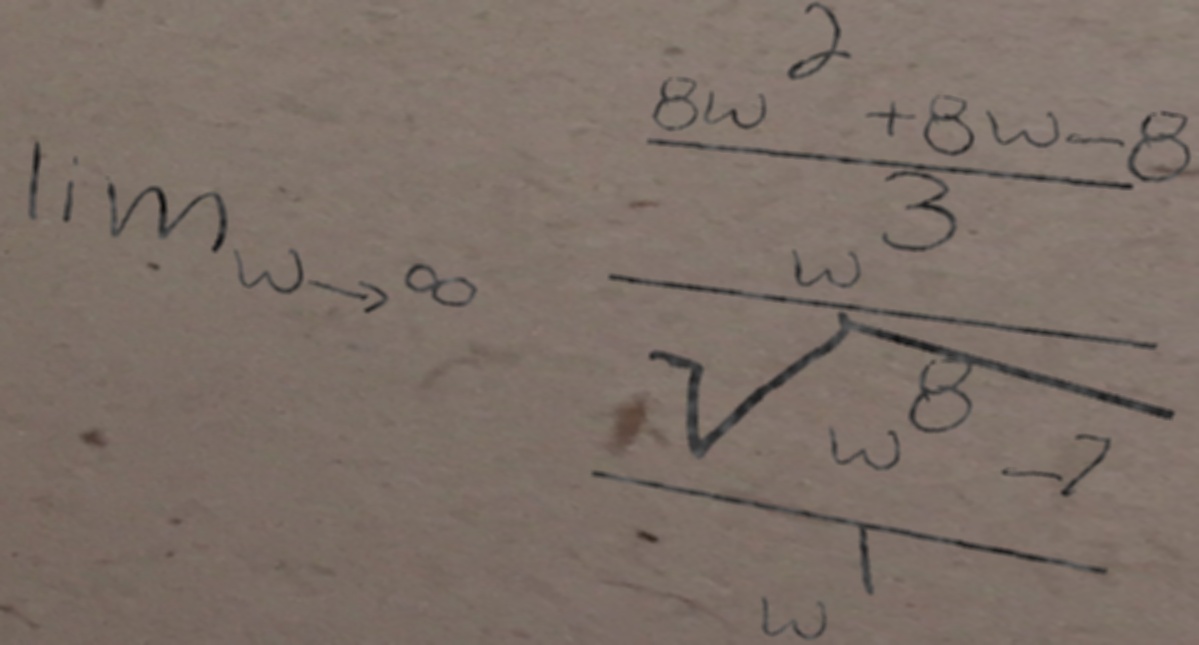 \lim_{w \to \infty} \frac{\frac{8w^2+8w-8}{w^3}}{\frac{\sqrt{w^8-7}}{w^1}}